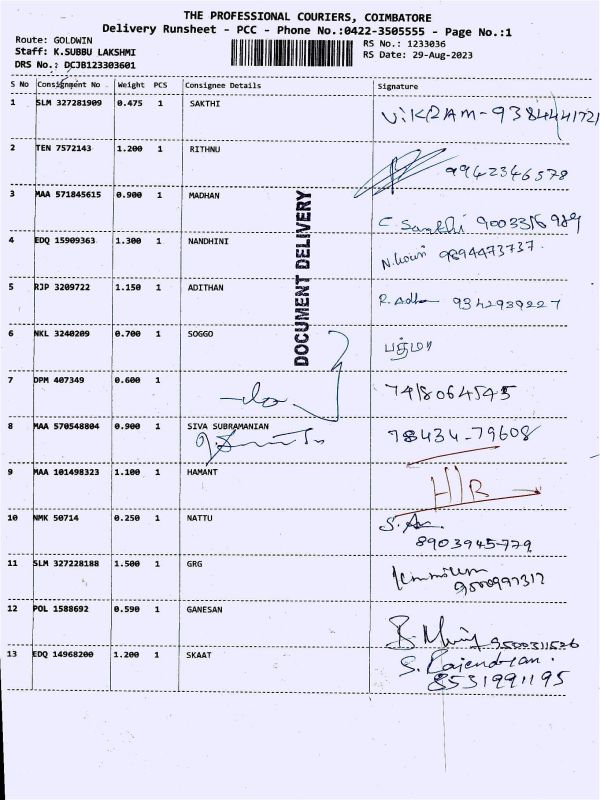 THE PROFESSIONAL COURIERS, COIMBATORE
Delivery Runsheet - PCC - Phone No.:0422-3505555 - Page No.:1
Route: GOLDWIN
RS No.: 1233036
Staff: K.SUBBU LAKSHMI
RS Date: 29-Aug-2023
DRS No.: DCJB123303601
S No Consignment No Weight PCS Consignee Details Signature
1 SLM 327281909 0.475 1 SAKTHI
ViKRAM - 9384441721
2 TEN 7572143 1.200 1 RITHNU
9942346578
3 MAA 571845615 0.900 1 MADHAN
DOCUMENT DELIVERY
C Santhi 9003356989
4 EDQ 15909363 1.300 1 NANDHINI
9894473737.
5 RJP 3209722 1.150 1 ADITHAN
R. 9342939227
6 NKL 3240209 0.700 1 SOGGO
பத்மா
7 DPM 407349 0.600 1
7418064545
8 MAA 570548804 0.900 1 SIVA SUBRAMANIAN
98434-79608
9 MAA 101498323 1.100 1 HAMANT
10 NMK 50714 0.250 1 NATTU
8903945779
11 SLM 327228188 1.500 1 GRG
12 POL 1588692 0.590 1 GANESAN
9500311526
13 EDQ 14968200 1.200 1 SKAAT
S. Rajendran.
8531991195